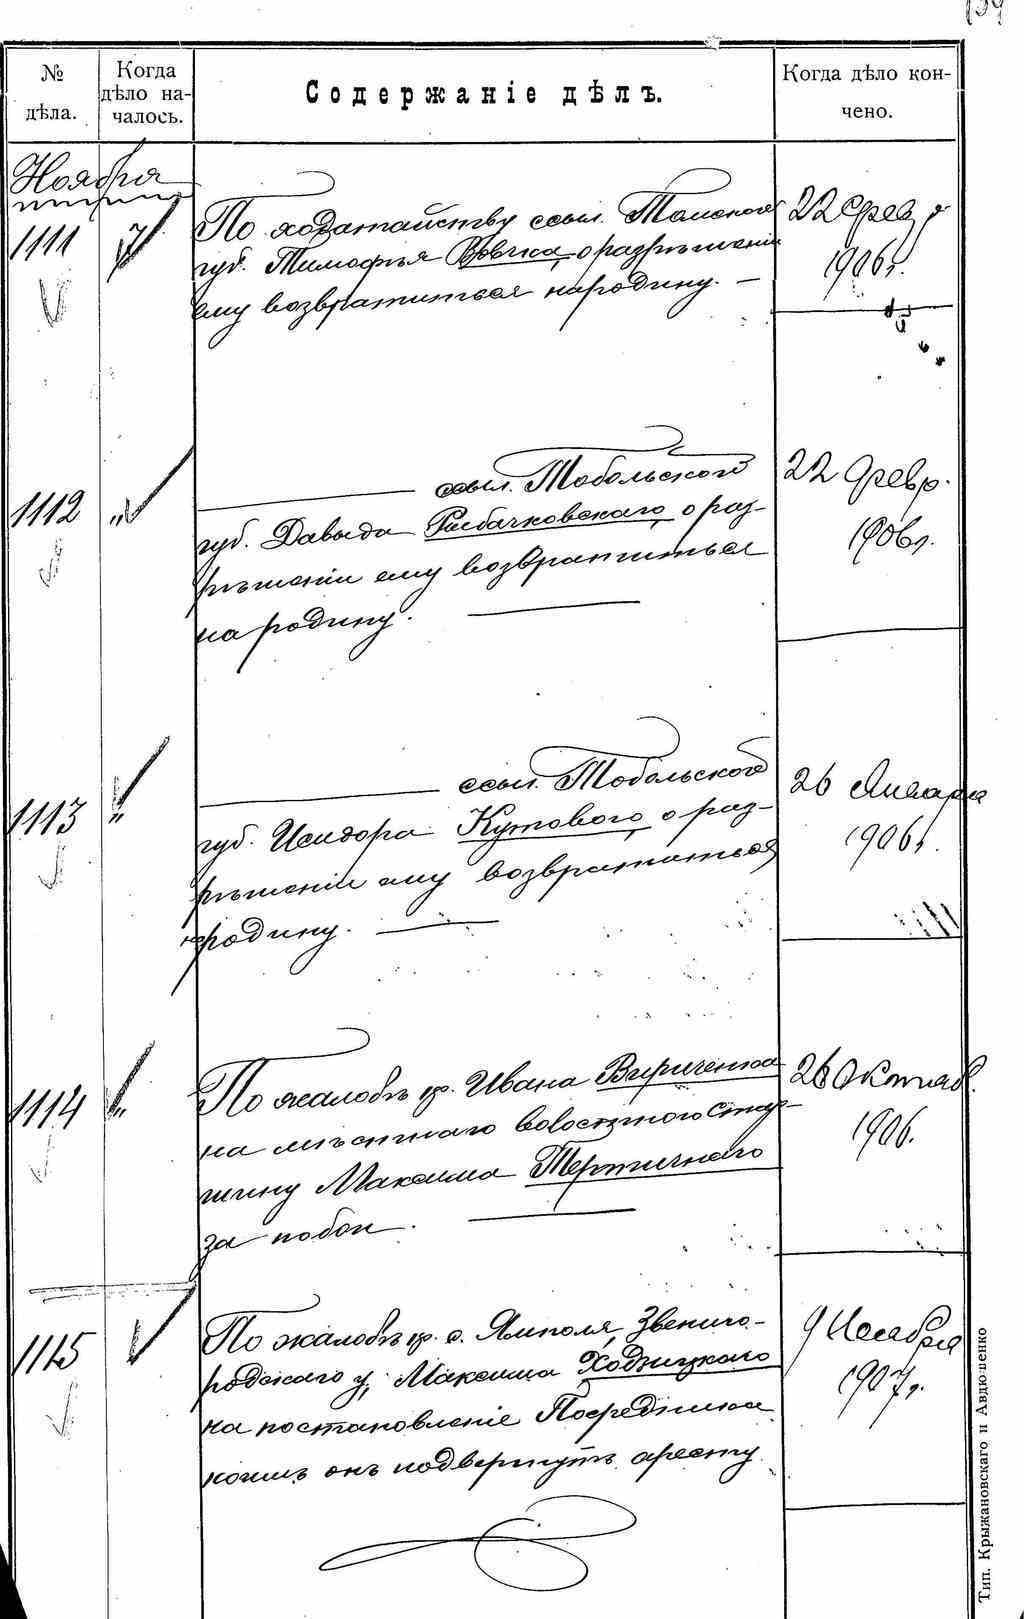 139
№ дѣла.
Когда дѣло на-
чалось.
Содержаніе дѣлъ.
Когда дѣло кон-
чено.
Ноября
1111
7
По ходатайству ссыл. Томской
губ. Тимофѣя Вовка, о разрѣшеніи
ему возвратиться на родину. —
22 Февр.
1906 г.
1112
"
——— ссыл. Тобольской
губ. Давыда Рыбачковскаго, о раз-
рѣшеніи ему возвратиться
на родину. ———
22 Февр.
1906 г.
1113
"
——— ссыл. Тобольской
губ. Исидора Кутового, о раз-
рѣшеніи ему возвратиться
на родину. ———
26 Января
1906 г.
1114
"
По жалобѣ кр. Ивана Вириченка
на мѣстнаго волостного Стар-
шину Максима Тертичнаго
за побои. ———
26 Октяб.
1906.
1115
По жалобѣ кр. с. Ямполя, Звениго-
родскаго у, Максима Ходзицкаго
на постановленіе Посредника
коимъ онъ подвергнутъ аресту.
9 Ноября
1907 г.
Тип. Крыжановскаго и Авдюшенко